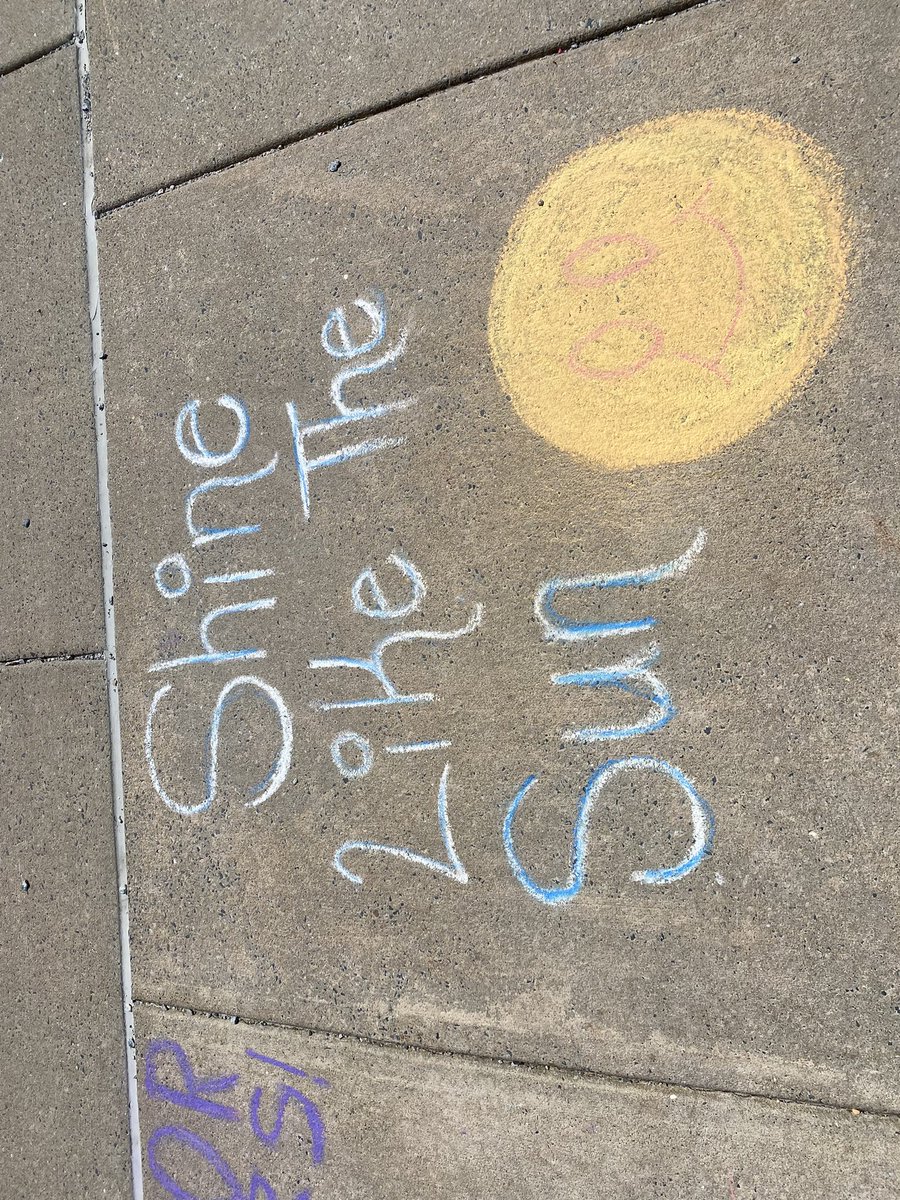 Shine
Like The
Sun